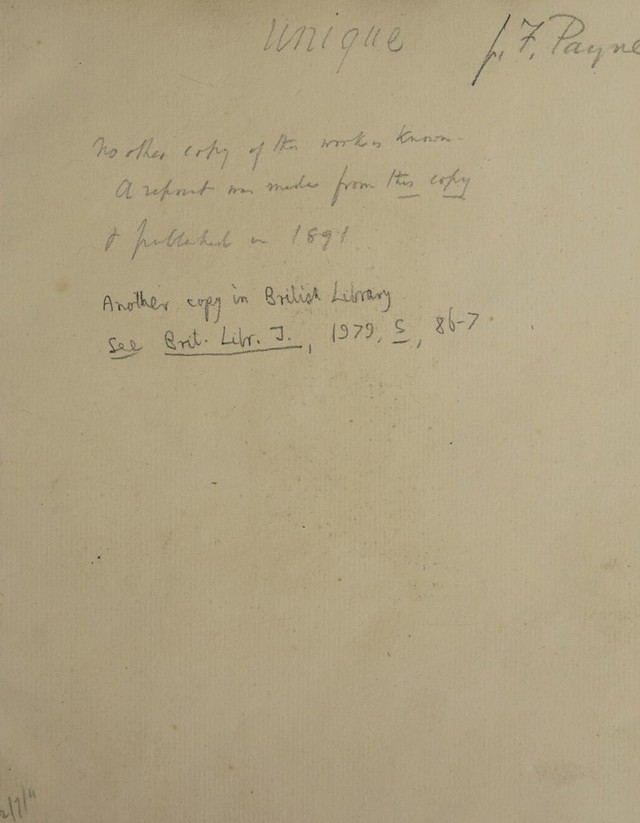 unique
J. F. Payne
No other copy of this work is known.
A reprint was made from this copy
& published in 1891
Another copy in British Library
See Brit. Libr. J., 1979, 5, 86-7
2/7/11